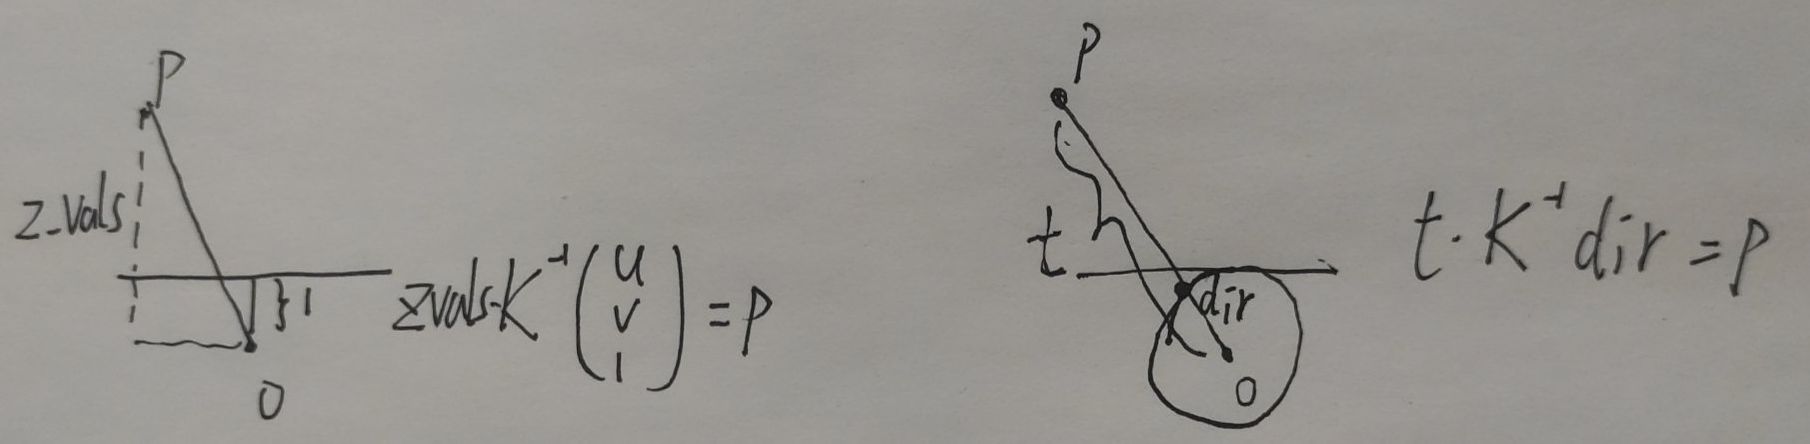 P
z-vals
}1
zvals·K⁻¹(u v 1) = P
O
P
t
dir
O
t·K⁻¹dir = P